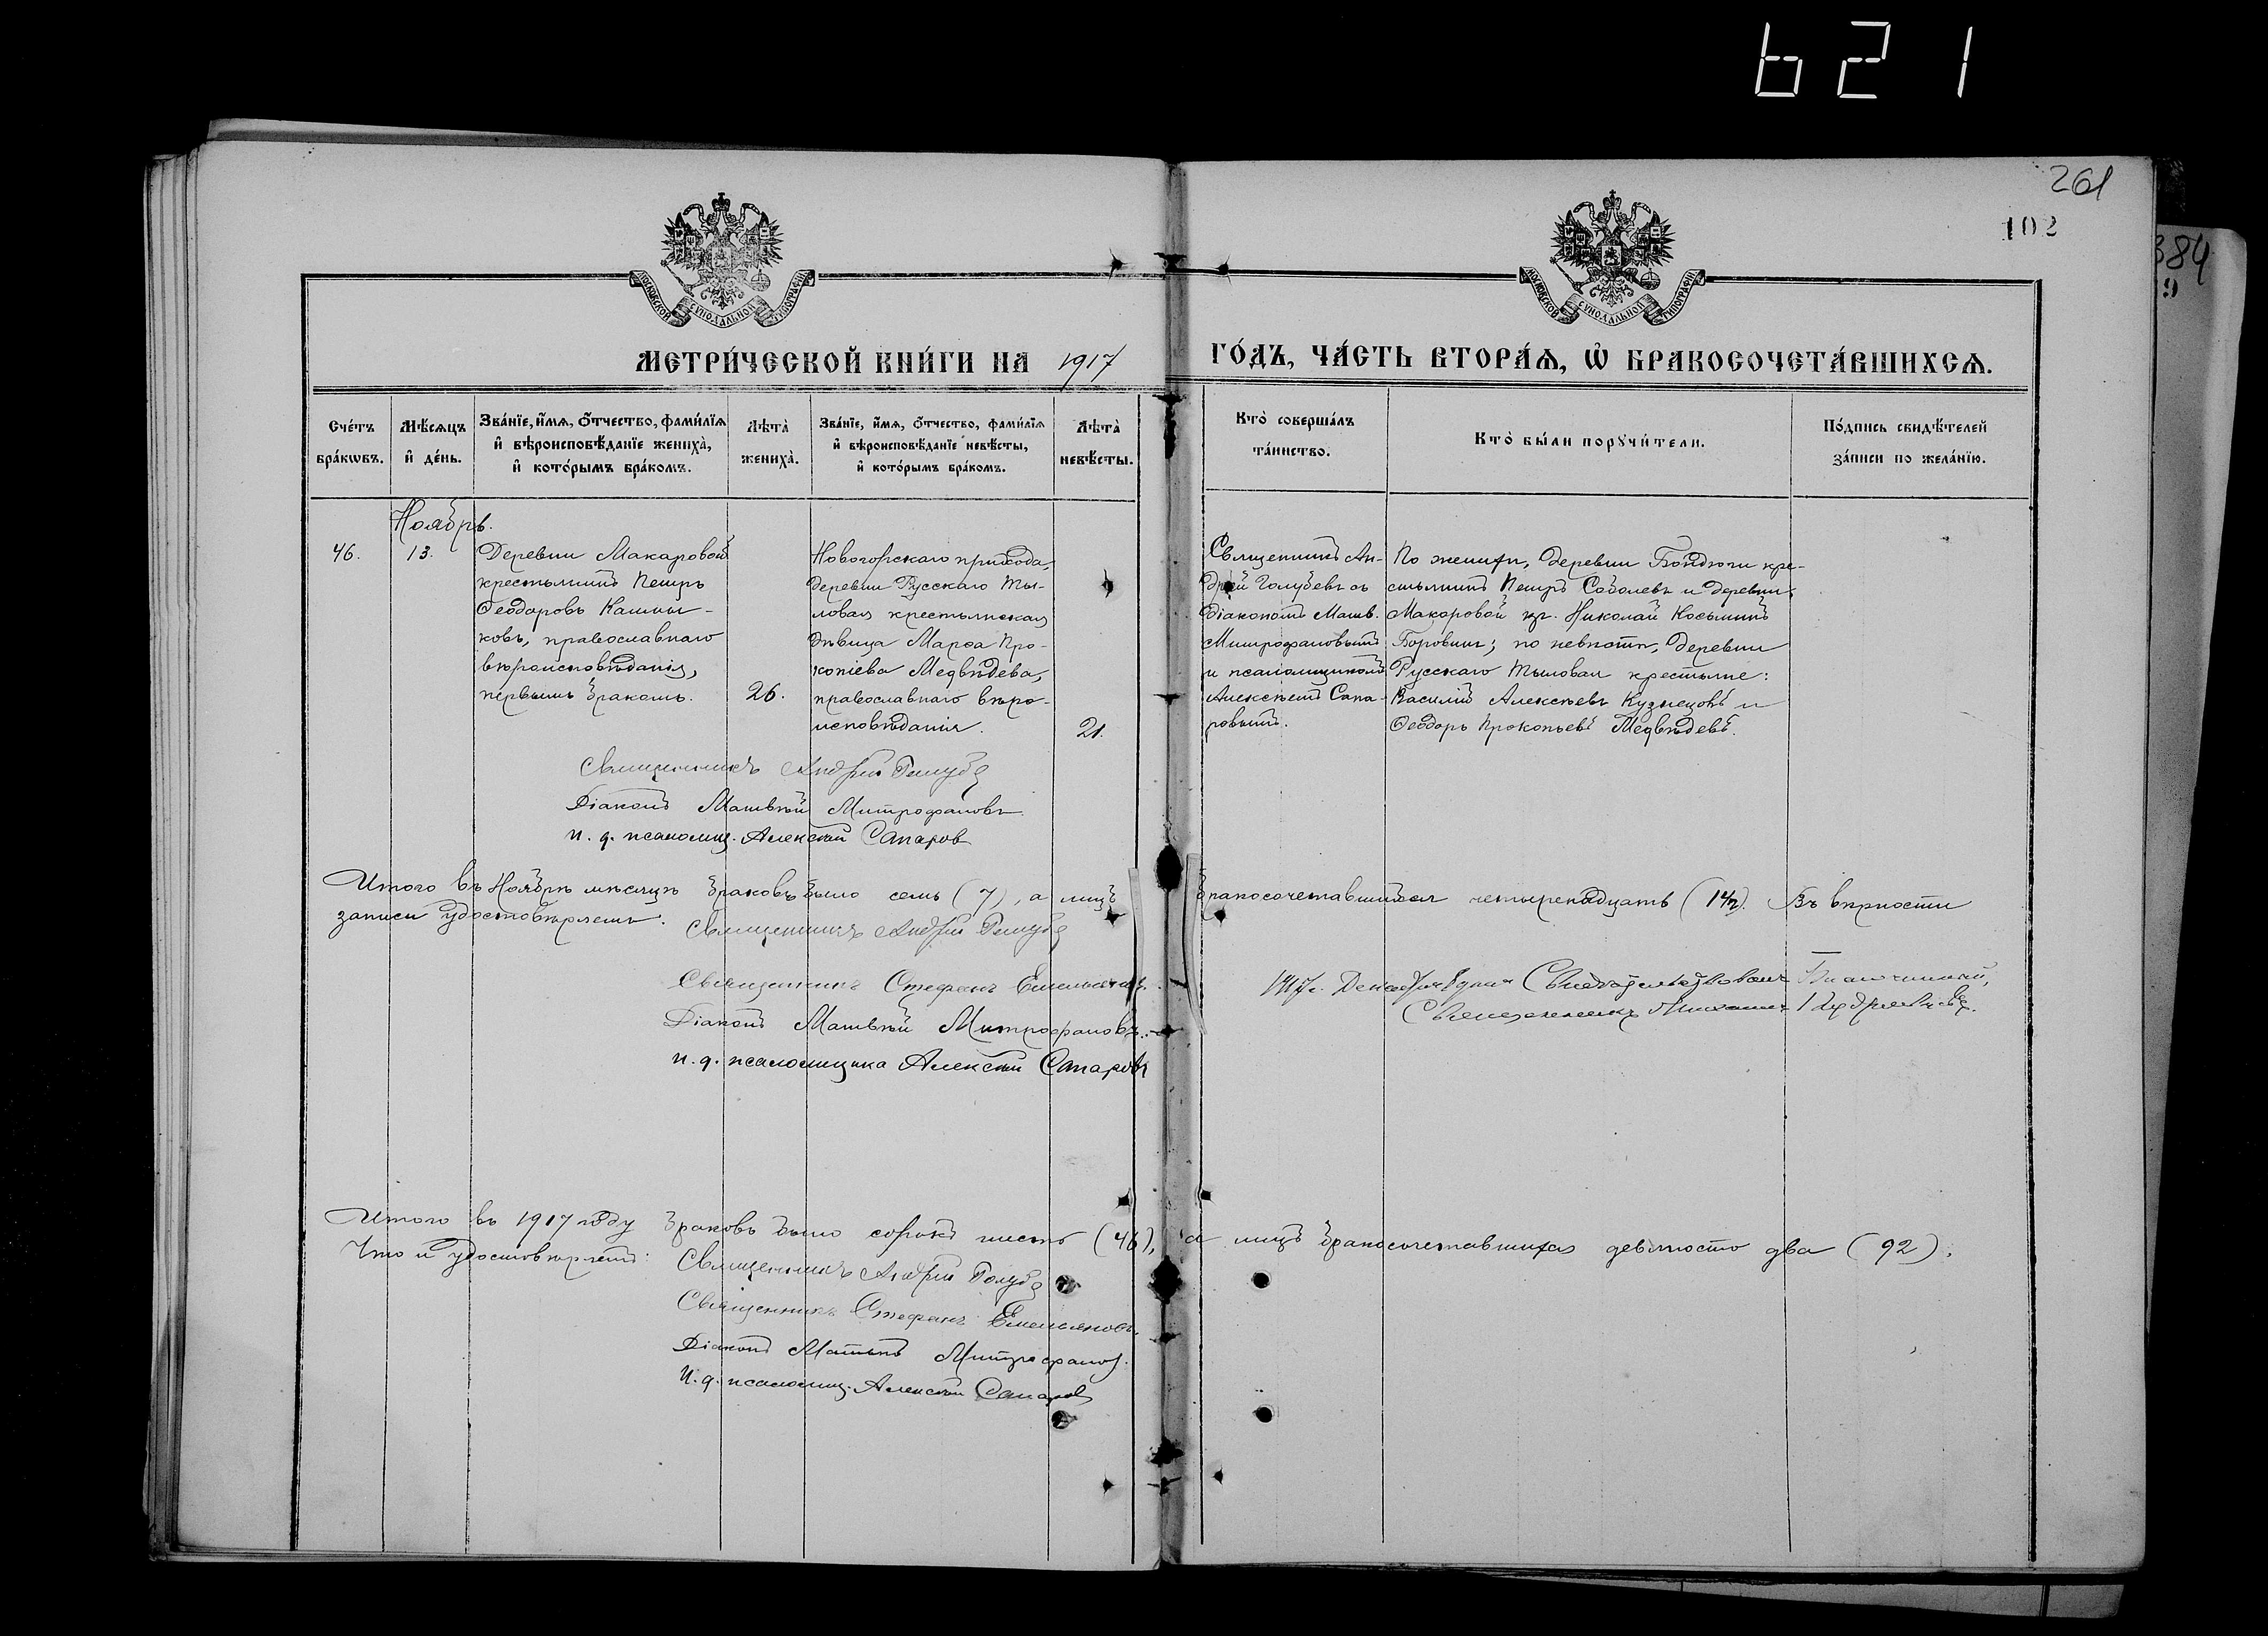 621
261
102
384
9
МОСКОВСКОЙ СѴНОДАЛЬНОЙ ТИПОГРАФІИ
МОСКОВСКОЙ СѴНОДАЛЬНОЙ ТИПОГРАФІИ
МЕТРИ́ЧЕСКОЙ КНИ́ГИ НА 1917 ГО́ДЪ, ЧА́СТЬ ВТОРА́Ѧ, Ѽ БРАКОСОЧЕТА́ВШИХСѦ.
Сче́тъ
бра́кωвъ.
Мѣ́сѧцъ
и҆ де́нь.
Зва́нїе, и҆́мѧ, ѻ҆́тчество, фами́лїѧ
и҆ вѣроисповѣ́данїе жениха̀,
и҆ кото́рымъ бра́комъ.
Лѣта̀
жениха̀.
Зва́нїе, и҆́мѧ, ѻ҆́тчество, фами́лїѧ
и҆ вѣроисповѣ́данїе невѣ́сты,
и҆ кото́рымъ бра́комъ.
Лѣта̀
невѣ́сты.
Кто̀ соверша́лъ
та́инство.
Кто̀ бы́ли порꙋчи́тели.
По́дпись свидѣ́телей
за́писи по жела́нїю.
Ноябрь.
46.
13.
Деревни Макаровой
крестьянинъ Петръ
Ѳеодоровъ Кашны-
ковъ, православнаго
вѣроисповѣданія,
первымъ бракомъ.
26.
Новогорскаго прихода,
деревни Русскаго Ты-
ловая крестьянская
дѣвица Марѳа Про-
копіева Медвѣдева,
православнаго вѣро-
исповѣданія.
21.
Священникъ Ан-
дрей Голубевъ съ
діакономъ Матв.
Митрофановымъ
и псаломщикомъ
Алексѣемъ Сапа-
ровымъ.
По женихѣ, деревни Бондюги кре-
стьянинъ Петръ Соболевъ и деревни
Макаровой кр. Николай Косьминъ
Боровин; по невѣстѣ, деревни
Русскаго Тыловая крестьяне:
Василій Алексѣевъ Кузнецовъ и
Ѳеодоръ Прокопьевъ Медвѣдевъ.
Священникъ Андрей Голубе
Діаконъ Матвѣй Митрофановъ
и. д. псаломщ. Алексѣй Сапаров
Итого въ Ноябрѣ мѣсяцѣ браковъ было семь (7), а лицъ бракосочетавшихся четырнадцать (14). Въ вѣрности
записи удостовѣряемъ:
Священникъ Андрей Голубе
Священникъ Стефанъ Емельянов.
Діаконъ Матвѣй Митрофановъ.
и. д. псаломщика Алексѣй Сапаровъ
1917 г. Декабря дня Свидѣтельствовалъ Благочинный,
Священникъ Михаилъ
Итого въ 1917 году браковъ было сорокъ шесть (46), а лицъ бракосочетавшихся девяносто два (92).
Что и удостовѣряемъ:
Священникъ Андрей Голубе
Священникъ Стефанъ Емельяновъ.
Діаконъ Матвѣй Митрофанов.
и. д. псаломщ. Алексѣй Сапаров